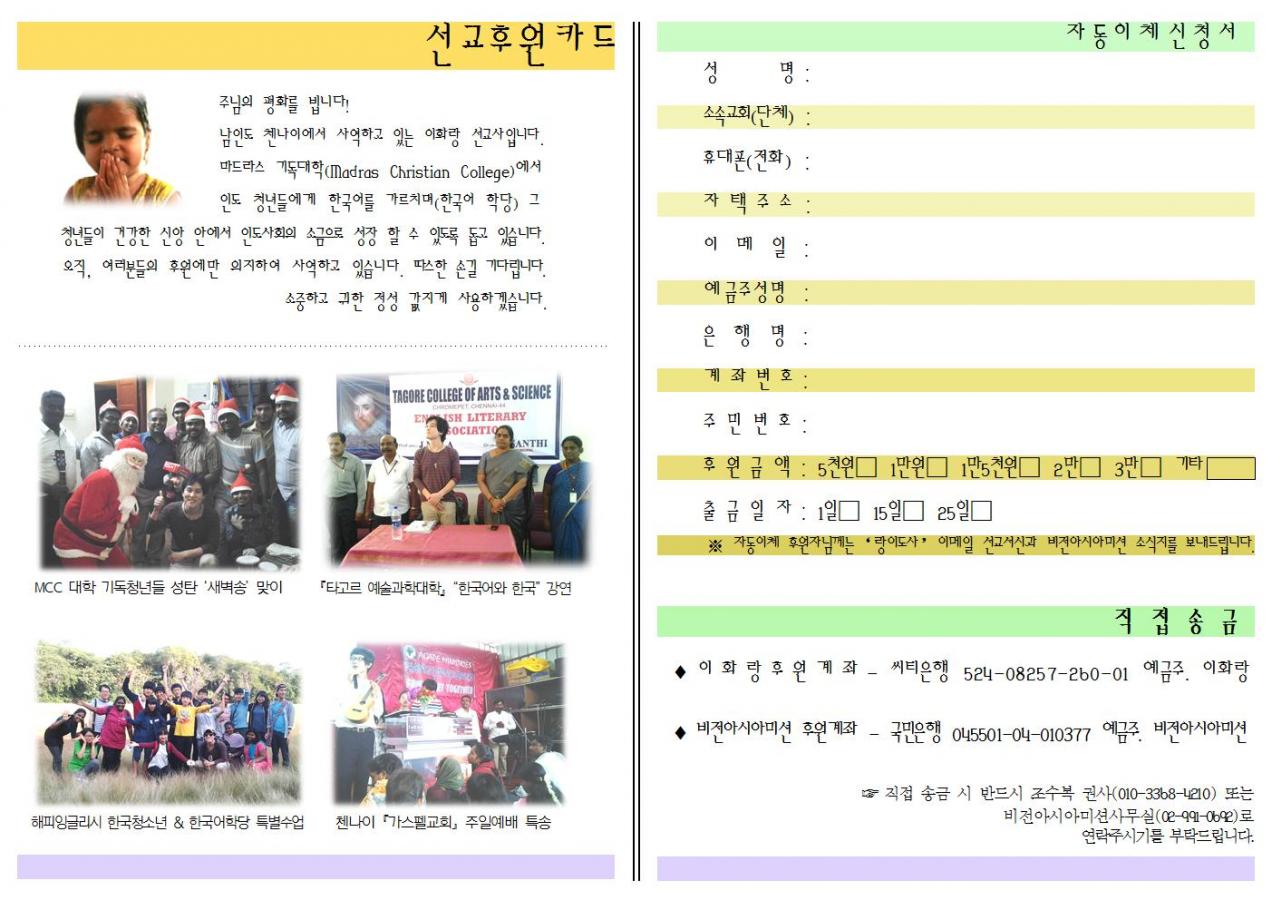 선교후원카드
주님의 평화를 빕니다!
남인도 첸나이에서 사역하고 있는 이화랑 선교사입니다.
마드라스 기독대학(Madras Christian College)에서
인도 청년들에게 한국어를 가르치며(한국어 학당) 그
청년들이 건강한 신앙 안에서 인도사회의 소금으로 성장 할 수 있도록 돕고 있습니다.
오직, 여러분들의 후원에만 의지하여 사역하고 있습니다. 따스한 손길 기다립니다.
소중하고 귀한 정성 값지게 사용하겠습니다.
TAGORE COLLEGE OF ARTS & SCIENCE
CHROMEPET, CHENNAI-44
ENGLISH LITERARY
ASSOCIATION
MCC 대학 기독청년들 성탄 '새벽송' 맞이
『타고르 예술과학대학』 "한국어와 한국" 강연
AGAPE MINISTRIES
TOGETHER
해피잉글리시 한국청소년 & 한국어학당 특별수업
첸나이 『가스펠교회』 주일예배 특송
자동이체신청서
성 명 :
소속교회(단체) :
휴대폰(전화) :
자택주소 :
이 메 일 :
예금주성명 :
은 행 명 :
계좌번호 :
주민번호 :
후원금액 : 5천원□ 1만원□ 1만5천원□ 2만□ 3만□ 기타
출금일자 : 1일□ 15일□ 25일□
※ 자동이체 후원자님께는 '랑이도사' 이메일 선교서신과 비전아시아미션 소식지를 보내드립니다.
직 접 송 금
♦ 이화랑후원계좌 - 씨티은행 524-08257-260-01 예금주. 이화랑
♦ 비전아시아미션 후원계좌 - 국민은행 045501-04-010377 예금주. 비전아시아미션
☞ 직접 송금 시 반드시 조수복 권사(010-3368-4210) 또는
비전아시아미션사무실(02-991-0692)로
연락주시기를 부탁드립니다.